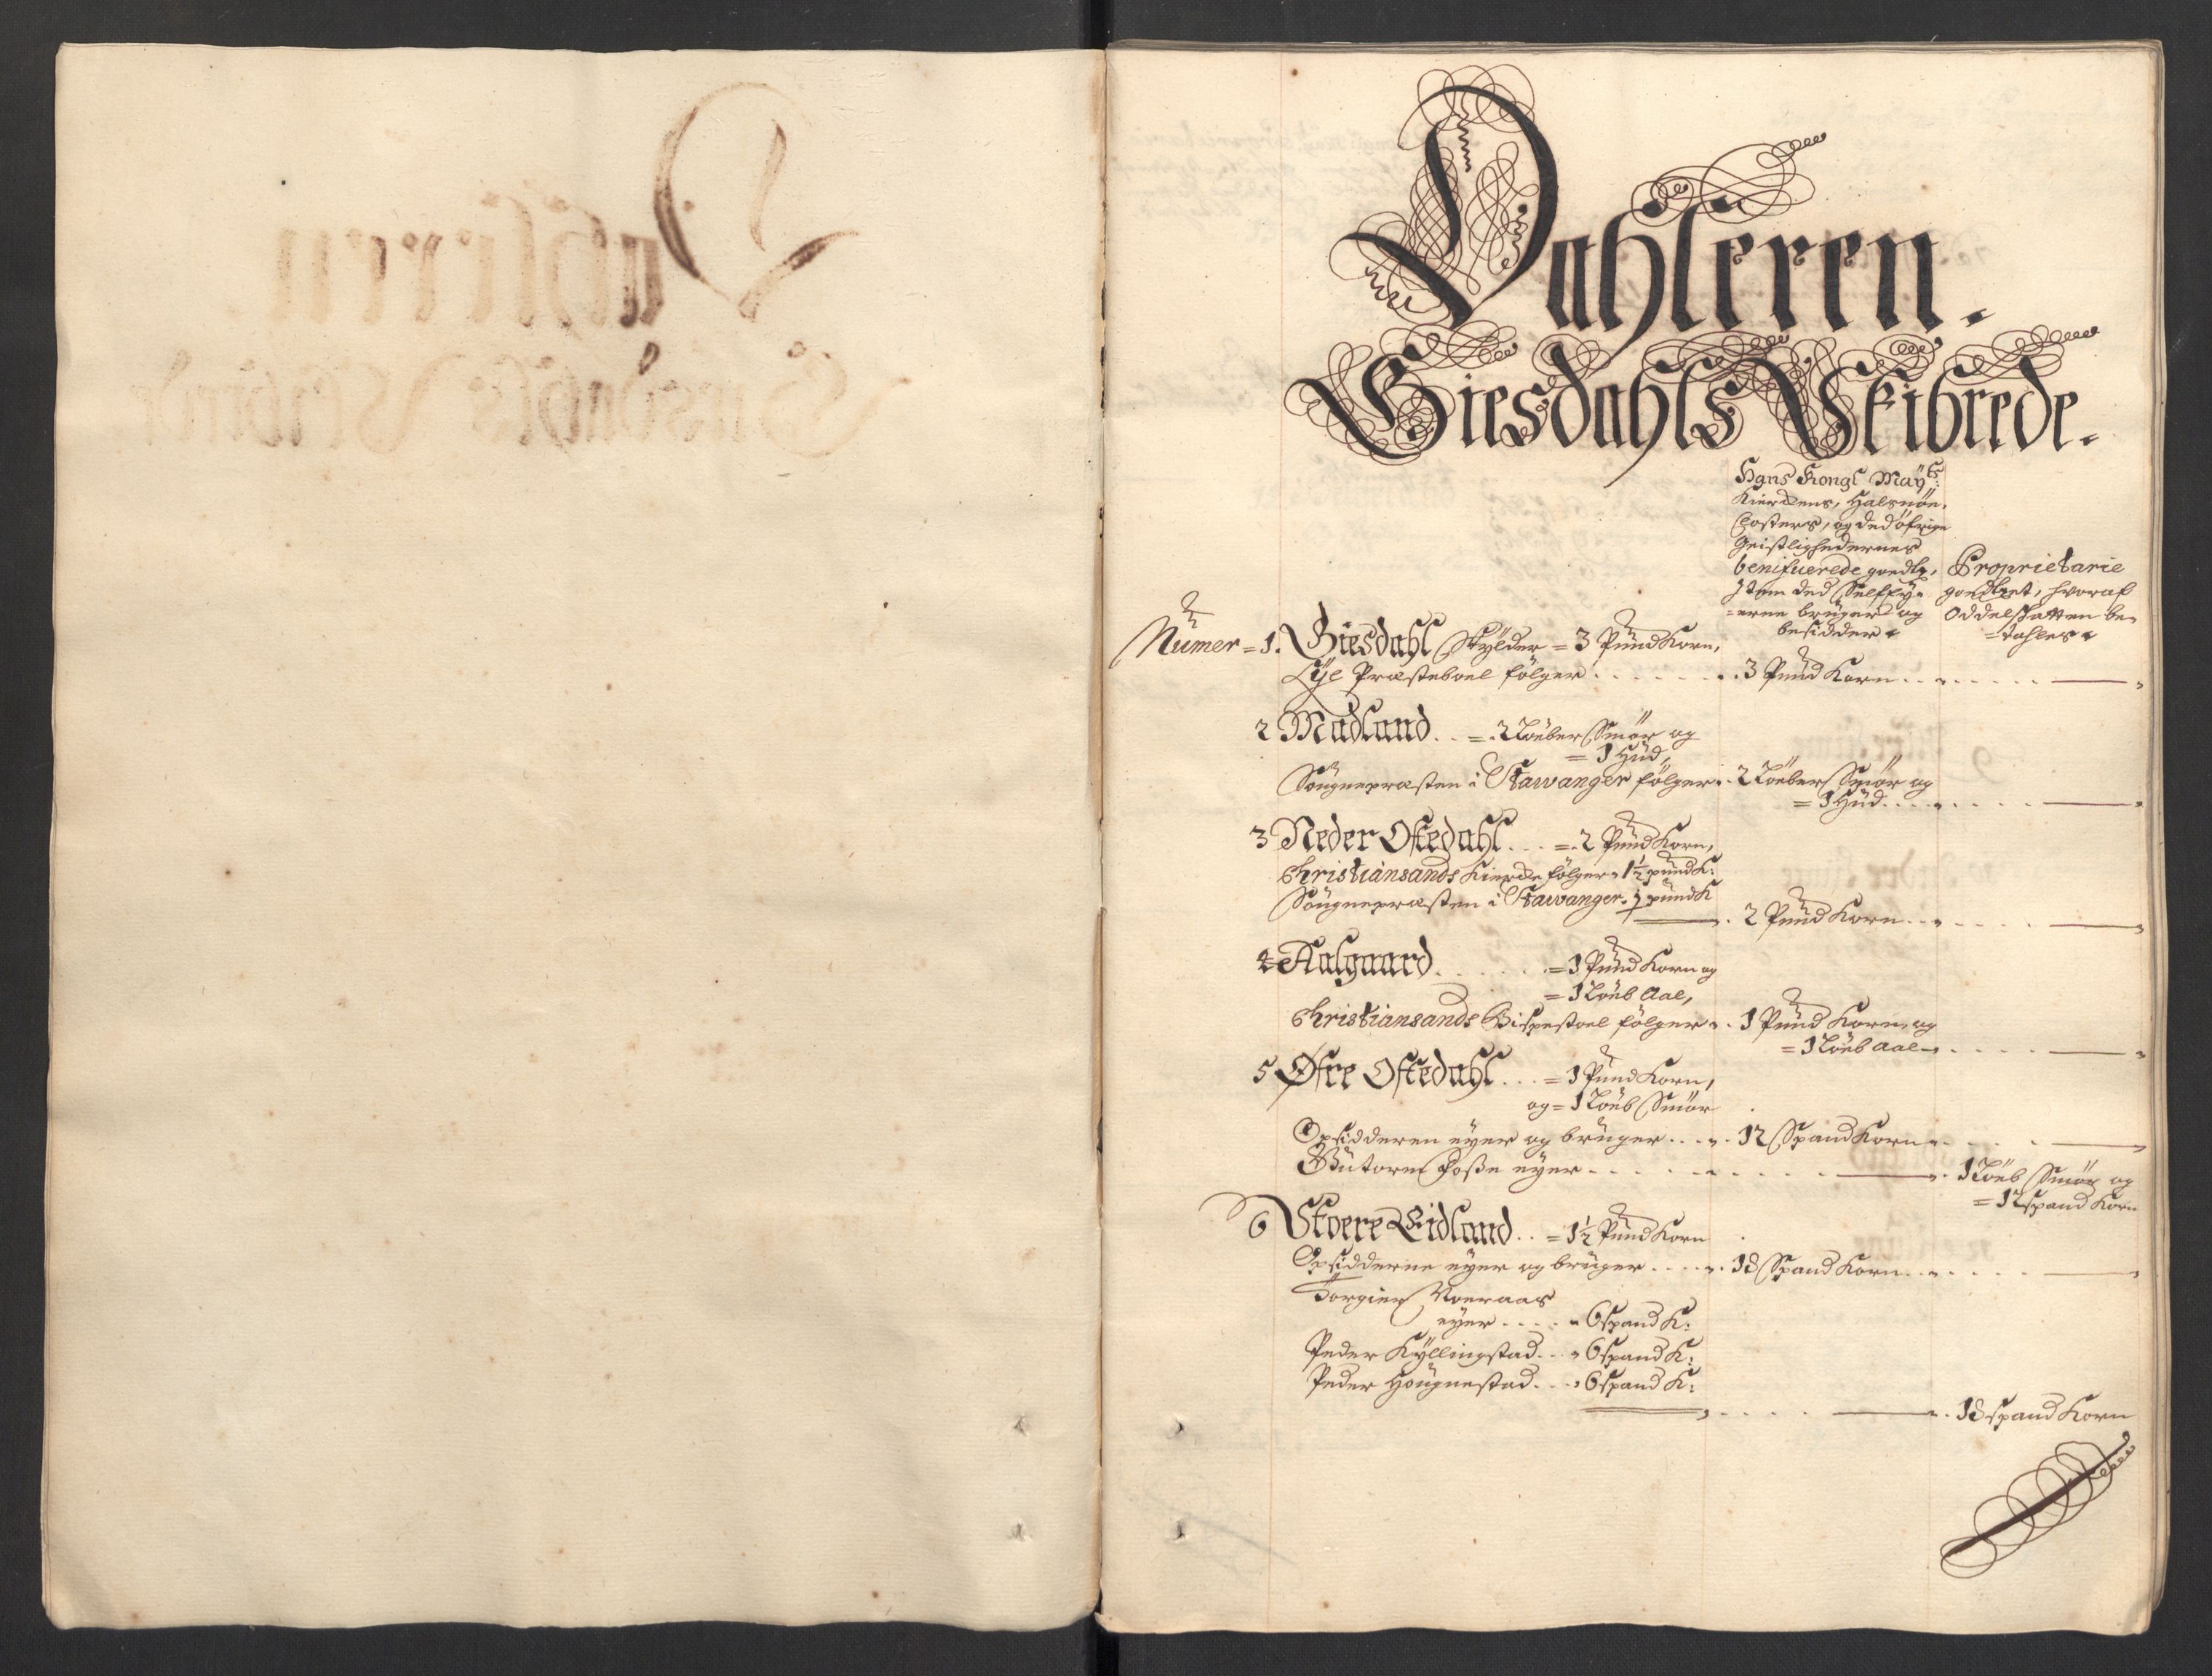 Dahleren.
Giesdahls Skibrede.
Hans Kongl May:ts
Kierkens, Halsnöe
Closters, og ded öfrige
Geistlighedernes
benificerede goedtz,
Item ded Selffey=
=erne bruger og
besidder
Proprietarie
goedtzet, hvoraf
Oddelskatten be=
=tahles
Numer = 1. Giesdahl Skylder = 3 Pund Korn,
Lÿe Præsteboel fölger . . . . . . . 3 Pund Korn . . . . . . .
2 Madland . . = 2 Löeber Smör og
= 1 Hud,
Sougnepræsten i Stawanger fölger . 2 Löeber Smör og
= 1 Hud . . . . . . .
3 Neder Oftedahl . . . = 2 Pund Korn,
Christiansands Kierke fölger 1½ pund K:
Sougnepræsten i Stawanger ½ pund K
2 Pund Korn . . . . . . .
4 Aalgaard . . . . . = 1 Pund Korn og
= 1 Löeb Aal,
Christiansands Bispestoel fölger . 1 Pund Korn, og
= 1 Löeb Aal . . . . .
5 Øfre Oftedahl . . . = 1 Pund Korn,
og = 1 Löeb Smör
Opsidderen eyer og bruger . . . . 12 Spand Korn . . . . .
Gutorm Fosse eyer . . . . . . . . . . 1 Löeb Smör og
= 12 spand Korn
6 Stoere Eidland . . = 1½ Pund Korn
Opsidderne eyer og bruger . . . . . 18 Spand Korn . . . . . .
Torgier Noeraas
eyer . . . . 6 spand K:
Peder Kÿllingstad . . . 6 spand K:
Peder Hougnestad . . . 6 spand K:
. . . . . . 18 spand Korn